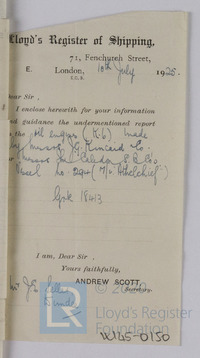 Lloyd's Register of Shipping,
71, Fenchurch Street,
E. London, 10th July 1925.
E.C.3.
Dear Sir,
I enclose herewith for your information
and guidance the undermentioned report
on the oil engines (K.6) made
by Messrs J.G. Kincaid & Co.
for Messrs
Vessel No. (M/V "Athelchief")
Gok 18413
I am, Dear Sir,
Yours faithfully,
ANDREW SCOTT,
Secretary.
Mr J.
Dundee
LR
© 2020
Lloyd's Register
Foundation
W145-0150